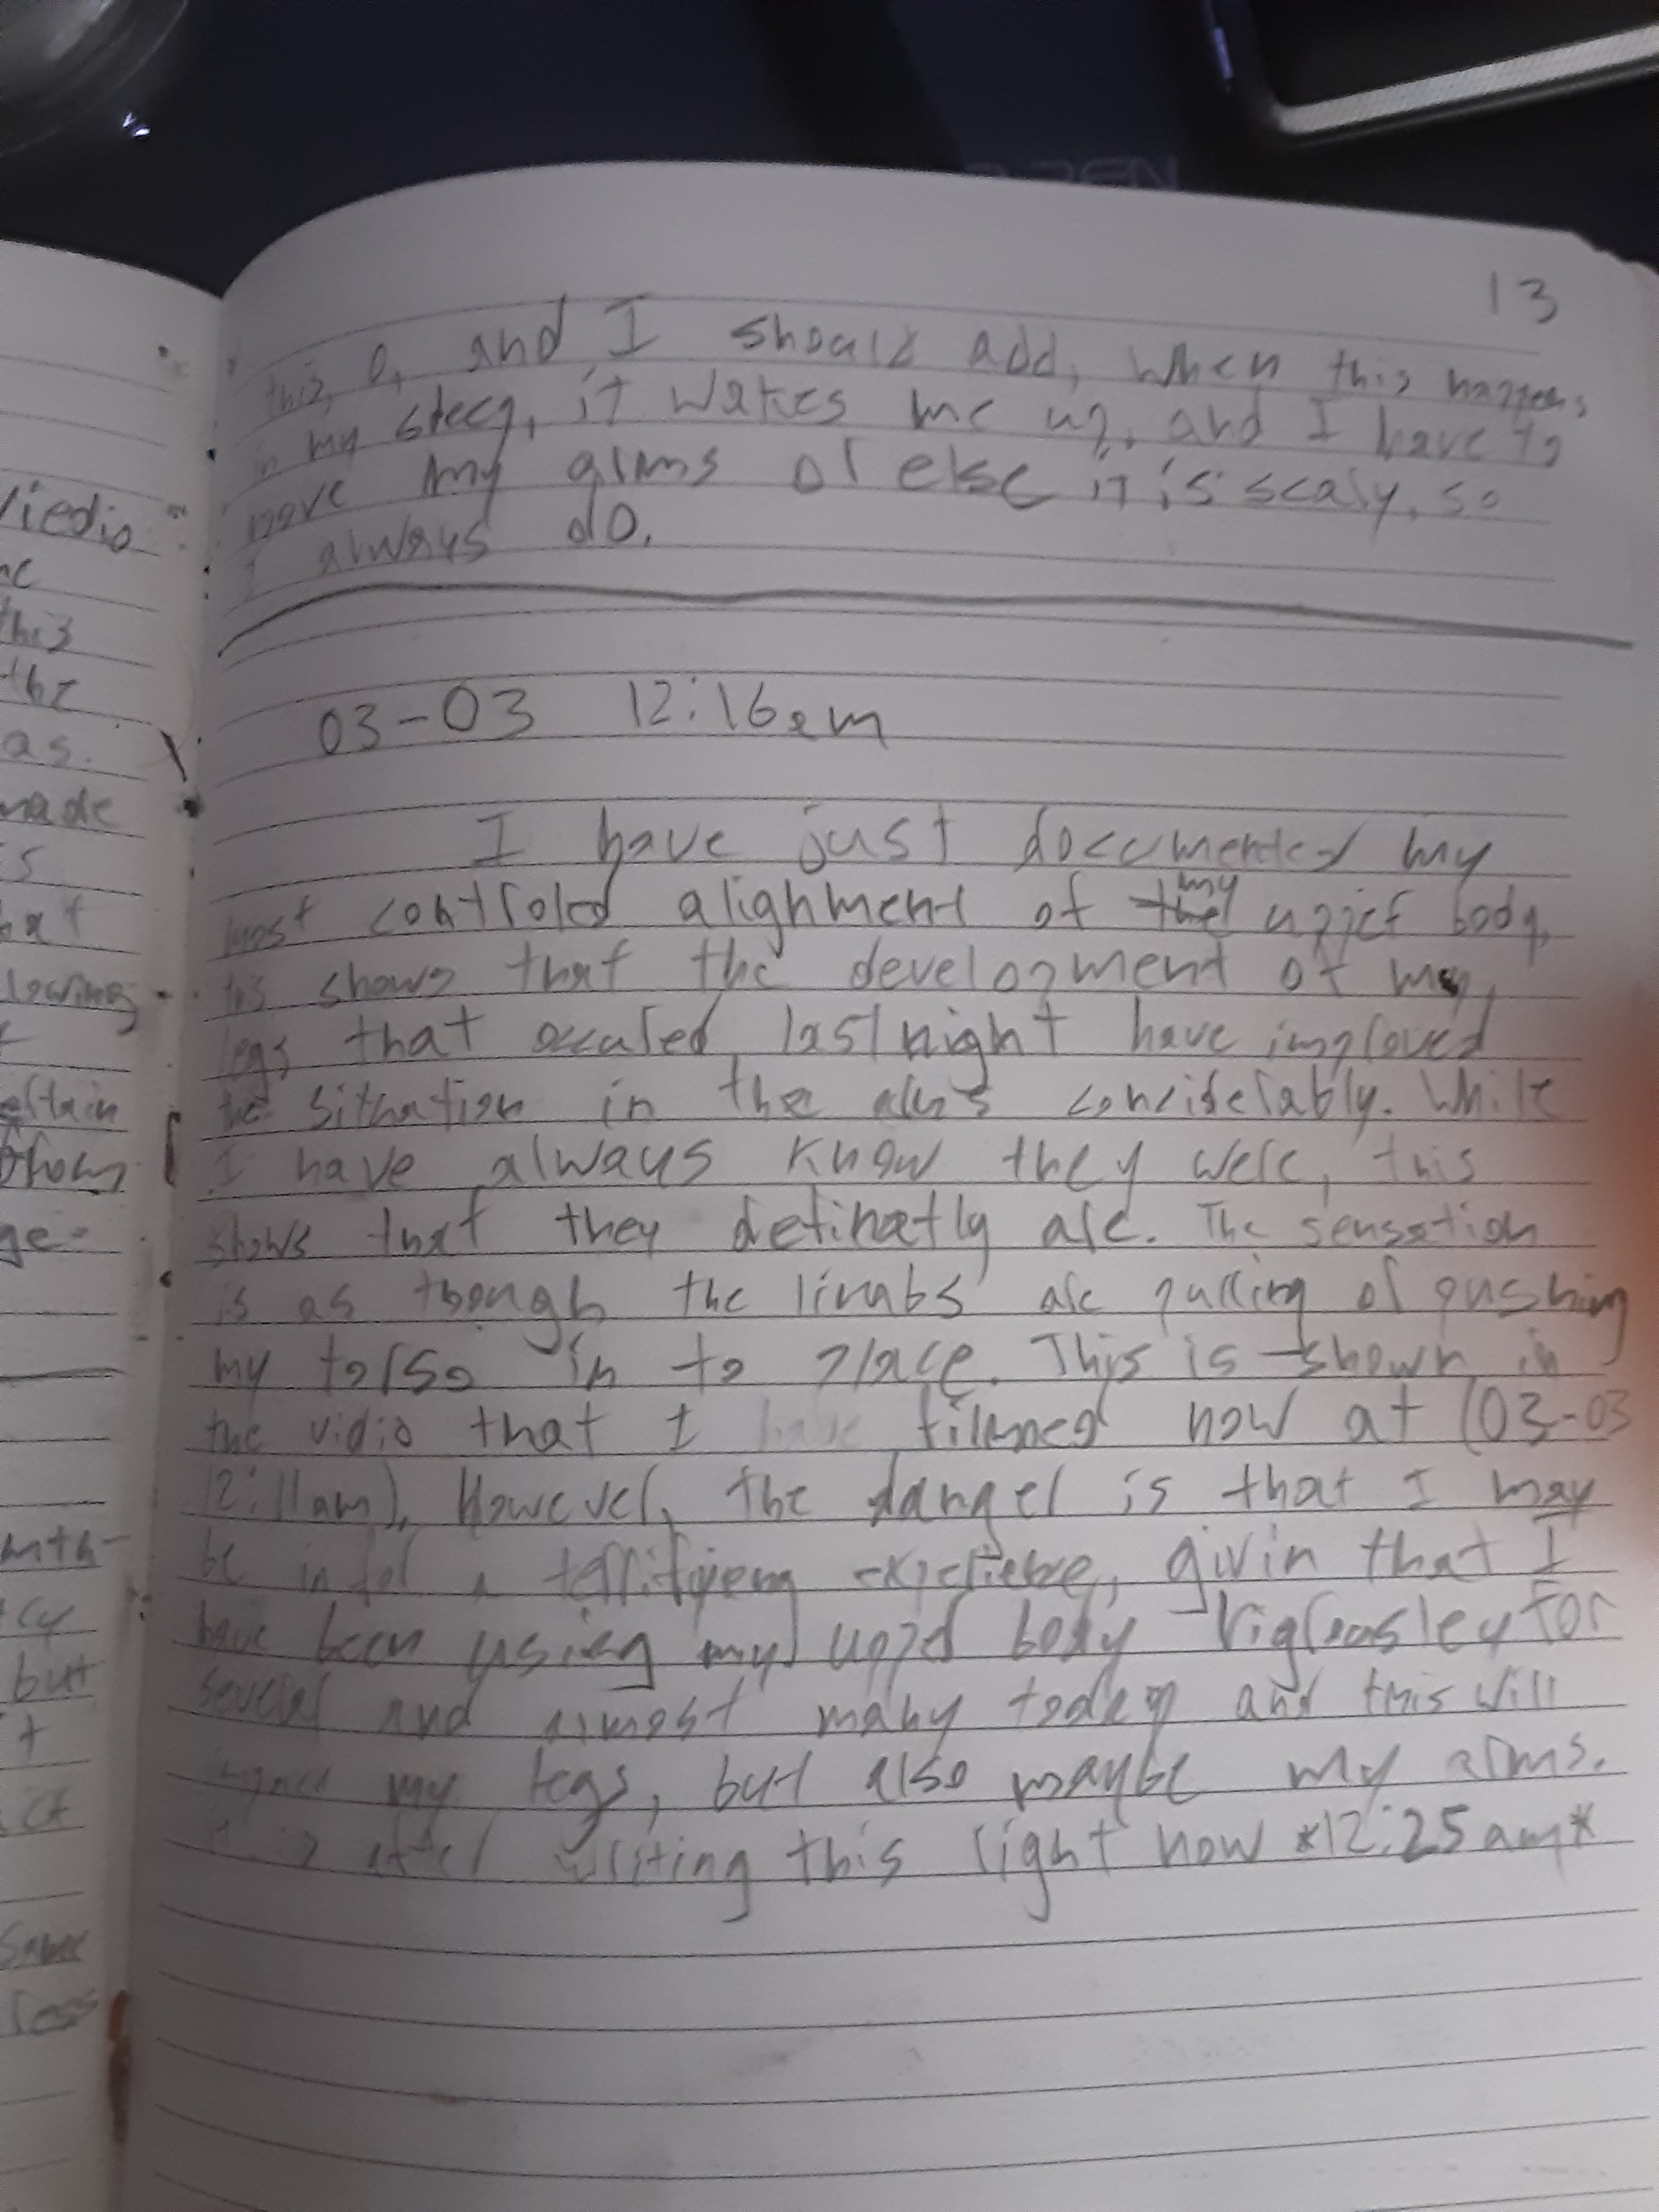 13
this, O, and I should add, when this happens
in my sleep, it wakes me up, and I have to
move my arms or else it is scary, so
I always do.
03-03 12:16am
I have just documented my
most controled alighment of the my upper body,
this shows that the development of my
legs that occured last night have improved
the sithation in the arms considerably. While
I have always know they were, this
shows that they definatly are. The sensation
is as though the limbs are pulling or pushing
my torso in to place. This is shown in
the vidio that I have filmed now at (03-03
12:11am), However, the danger is that I may
be in for a experience, givin that I
have been using my upper body for
several and almost many today and this will
my legs, but also maybe my arms.
after writing this right now *12:25am*
Viedio
this
the
as.
made
hat
lowing
ertain
from
ge-
but
t
same
less